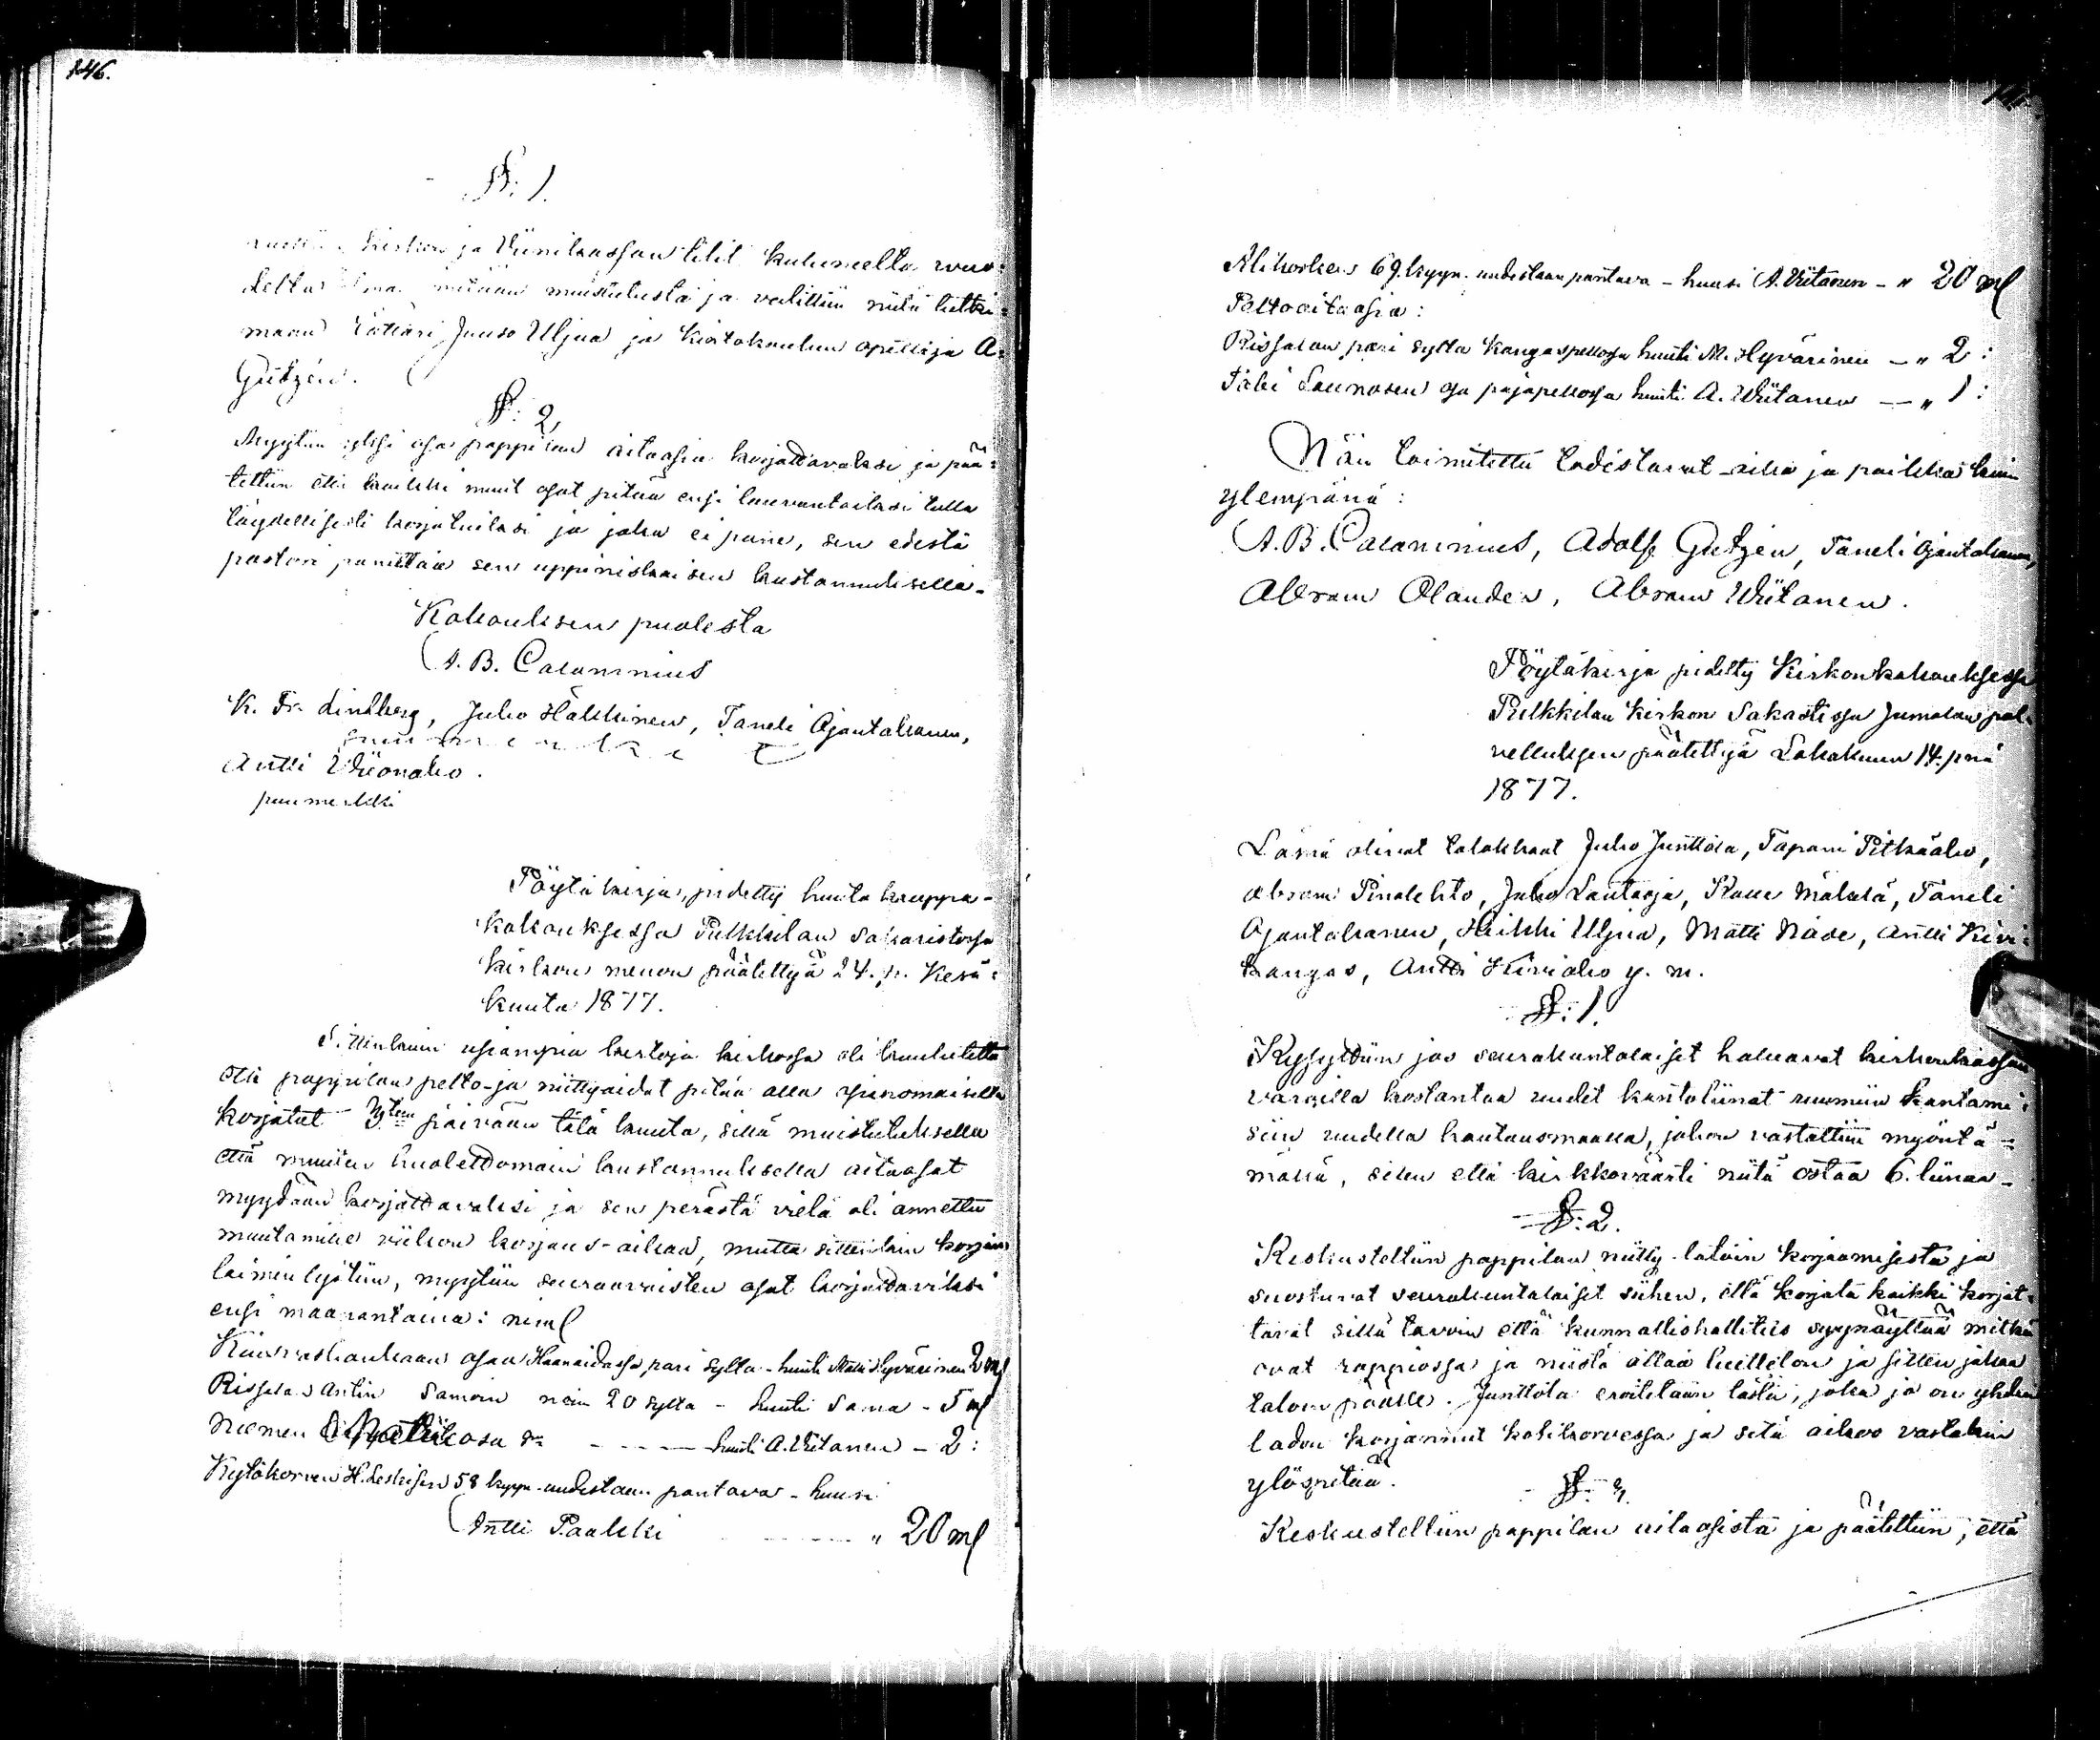 146.
§: 1.
kirkon ja Viinikassan tilit kuluneelta vuo:
delta ilman mitään muistutusta ja valittiin niitä tutki:
maan Lottari Juuso Uljua ja Kiertokoulun opettaja A:
Gutzén.
§: 2,
Myytiin yksi osa pappilan aitaosia korjattavaksi ja pää:
tettiin että kaikki muut osat pitää ensi lauvantaiksi tulla
täydellisesti korjatuiksi ja joka ei pane, sen edestä
pastori panettaa sen uppiniskaisen kustannuksella.
Kokouksen puolesta
A. B. Calamnius
K. Fr. Lindberg, Juho Häkkinen, Taneli Ajantakanen,
puumerkit
Antti Viionaho.
puumerkki
Pöytäkirja, pidetty huutokauppa-
kokouksessa Pulkkilan Sakaristossa
kirkon menon päätettyä 24. p. Kesä:
kuuta 1877.
Sittenkuin usiampia kertoja kirkossa oli kuulutettu
että pappilan pelto- ja niittyaidat pitää olla
korjatut päivään tätä kuuta, sillä muistutuksella
että muuten huolettomain kustannuksella aitaosat
myydään korjattavaksi ja sen perästä vielä oli annettu
muutamille viikon korjaus-aikaa, mutta sittenkin korjaus
laiminlyötiin, myytiin seuraavaisten osat korjattaviksi
ensi maanantaina: niml
osaa Haanaidassa, pari syltä - huuti Matti Hyvärinen 2 ml
Rissasen Antin Samoin noin 20 syltä - huuti Sama - 5 ml
Niemen osa - - - - huuti A. Viitanen - 2:
Kytökorven H. Leskisen 58 kyyn. uudestaan pantava - huusi
Antti Paakki - - - - " 20 ml
Alikosken 69. kyyn. uudestaan pantava - huusi A. Viitanen - " 20 ml
Peltoaitaosia:
Rissasen pari syltä kangaspellossa huuti M. Hyvärinen - " 2:
Saunosen osa pajapellossa huuti A. Wiitanen - " 1:
Näin toimitettu todistavat - aika ja paikka kuin
ylempänä:
A. B. Calamnius, Adolf Gutzen, Taneli Ajantakanen,
Abram Olander, Abram Wiitanen.
Pöytäkirja pidetty Kirkonkokouksessa
Pulkkilan kirkon Sakastissa Jumalan pal-
velluksen päätettyä Lokakuun 14. pnä
1877.
Läsnä olivat talokkaat Juho Junttola, Tapani Pitkäaho,
Abram Pinolehto, Juho Lautaoja, Taneli
Ajantakanen, Heikki Uljua, Matti Made, Antti Kivi:
kangas, Antti Kiviaho y. m.
§: 1.
Kysyttiin jos seurakuntalaiset haluavat kirkonkassan
varoilla kostantaa uudet kantoliinat ruumiin kantami:
siin uudella hautausmaalla, johon vastattiin myöntä=
mällä, siten että kirkkoväärti niitä ostaa 6. liinaa-
§: 2.
Keskusteltiin pappilan niitty-latoin korjaamisesta ja
suostuvat seurakuntalaiset siihen, että korjata kaikki korjat-
tavat sillä tavoin että kunnallishallitus syynäyttää mitkä
ovat rappiossa ja niistä ottaa luettelon ja sitten jakaa
taloin päälle. Junttola eroitetaan tästä, joka jo on yhden
ladon korjannut kotikorvessa ja sitä aikoo vastakin
ylöspitää.
§: 3.
Keskusteltiin pappilan aitaosista ja päätettiin, että